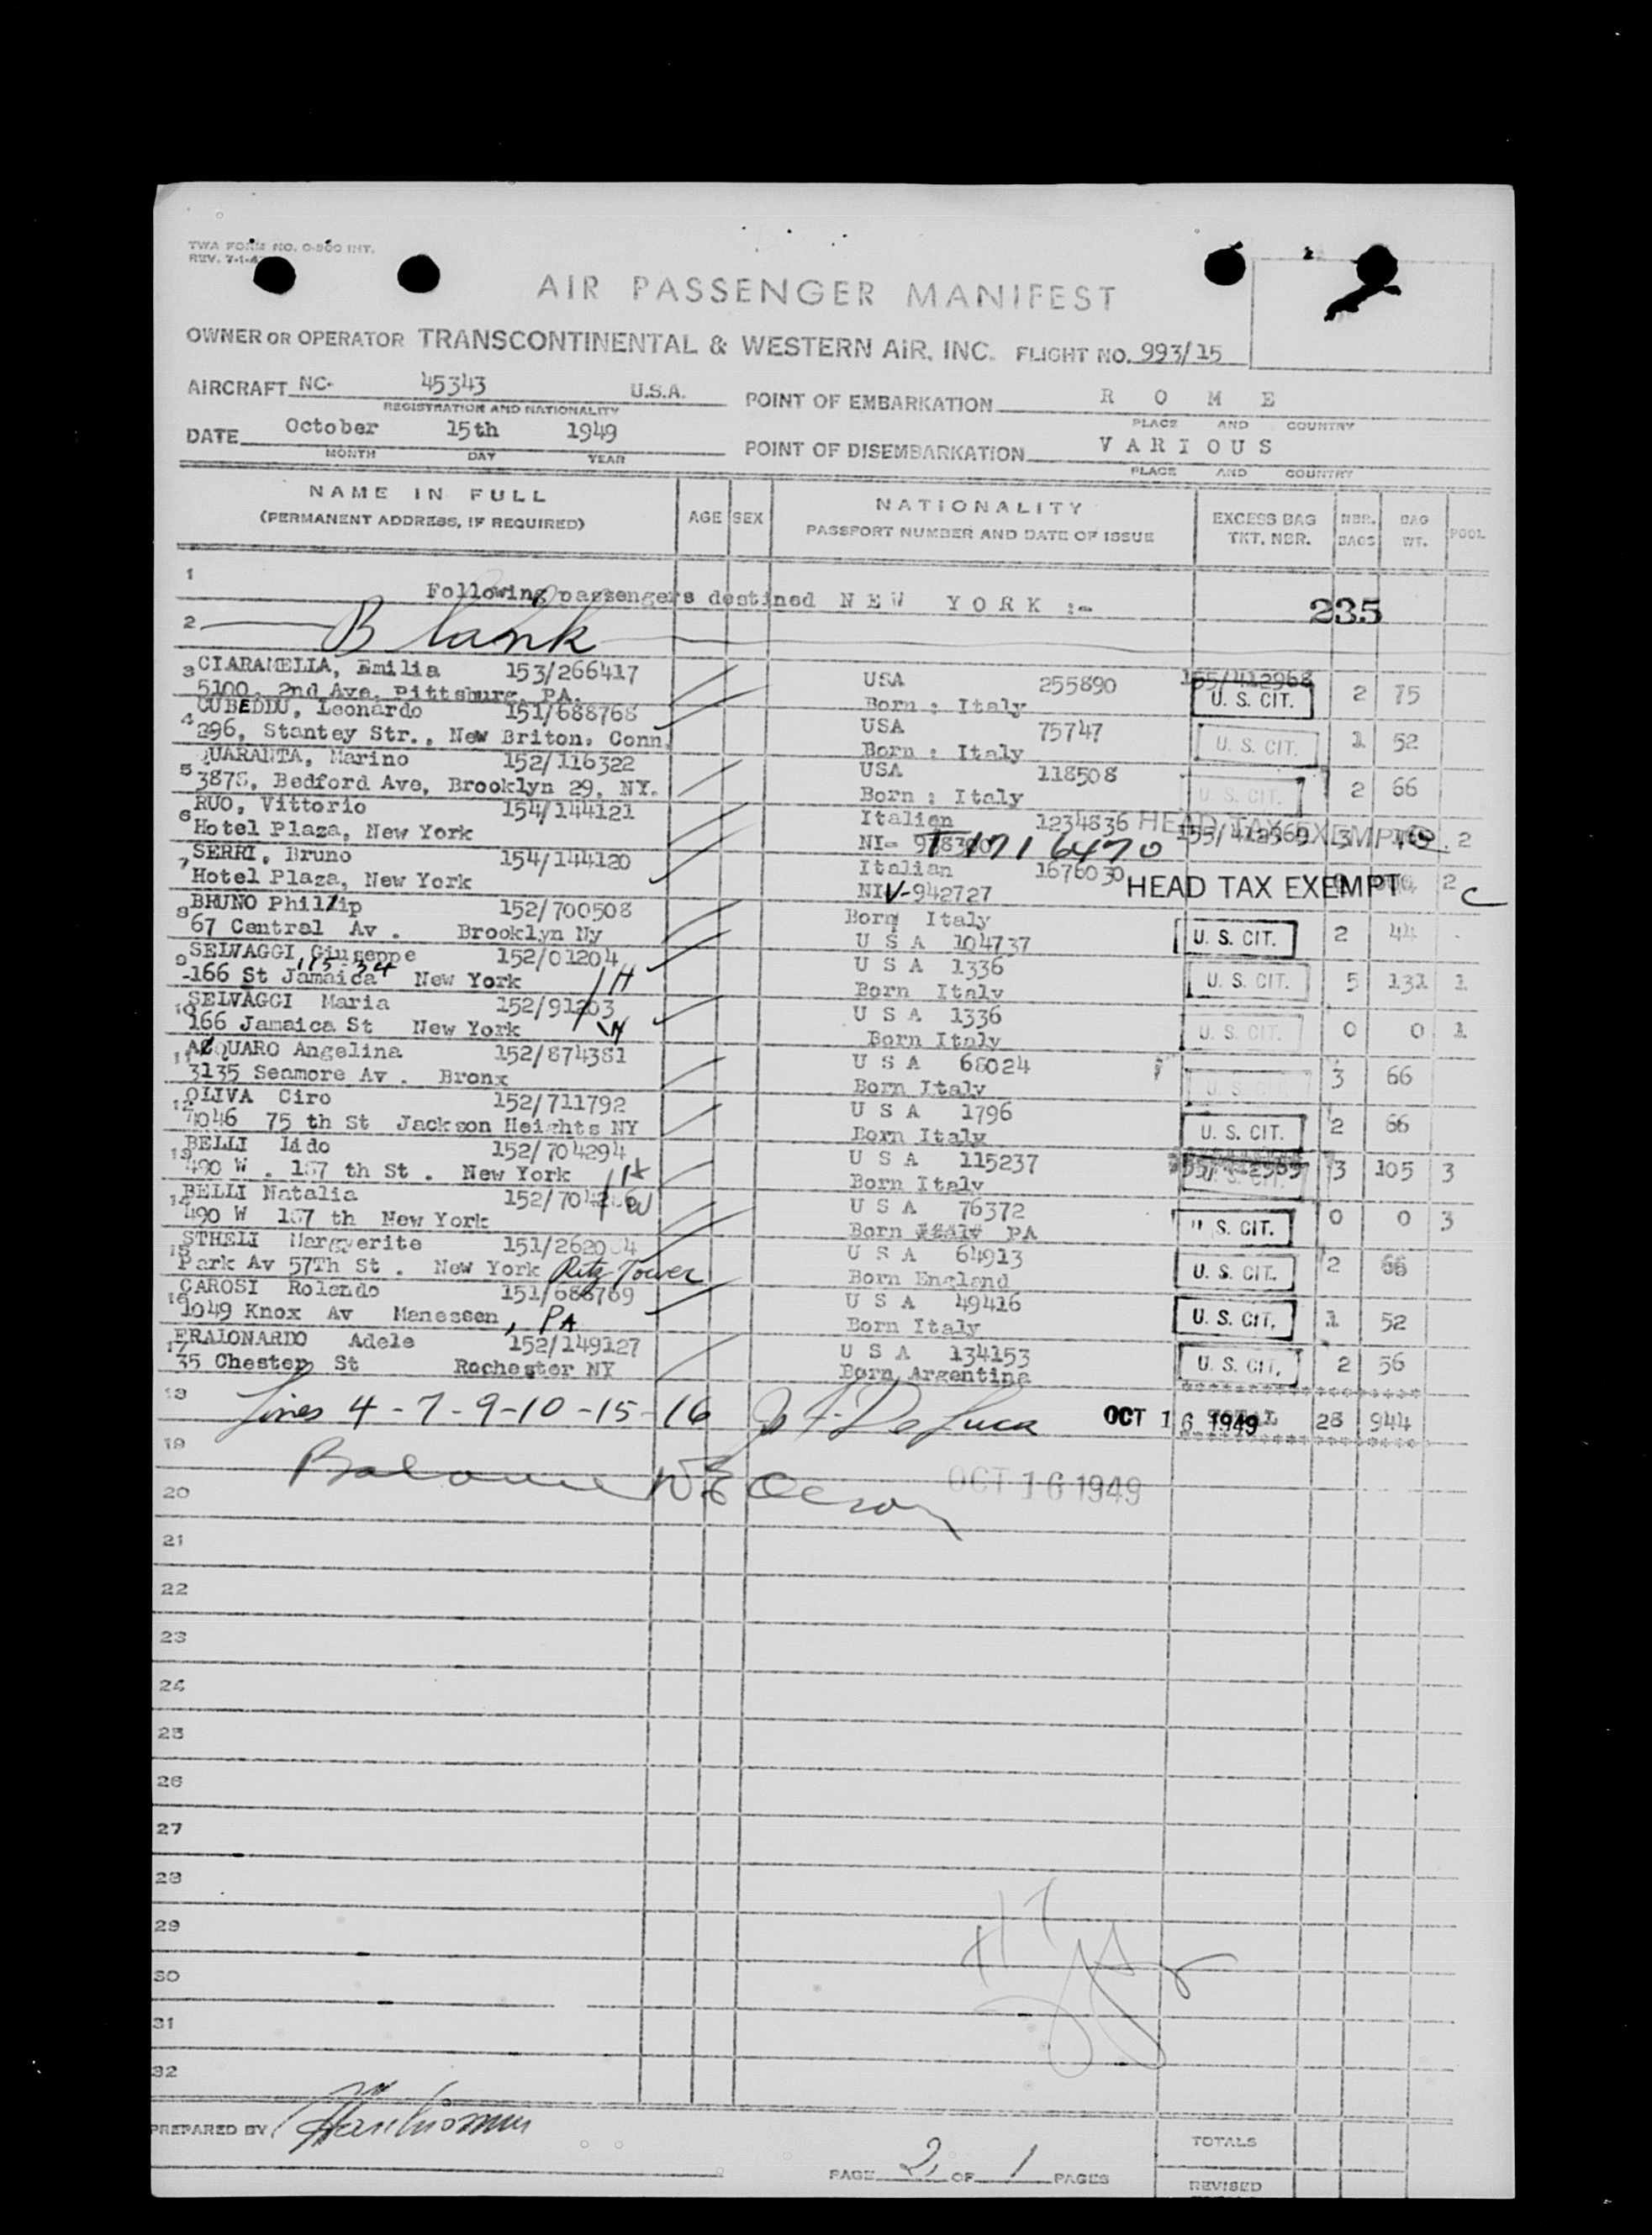 TWA FORM NO. O-800 INT.
REV. 7-1-4
AIR PASSENGER MANIFEST
OWNER OR OPERATOR TRANSCONTINENTAL & WESTERN AIR, INC. FLIGHT NO. 993/15
AIRCRAFT NC- 45343 U.S.A. POINT OF EMBARKATION R O M E
REGISTRATION AND NATIONALITY PLACE AND COUNTRY
DATE October 15th 1949 POINT OF DISEMBARKATION V A R I O U S
MONTH DAY YEAR PLACE AND COUNTRY
NAME IN FULL AGE SEX NATIONALITY EXCESS BAG NBR. BAG POOL
(PERMANENT ADDRESS, IF REQUIRED) PASSPORT NUMBER AND DATE OF ISSUE TKT. NBR. BAGS WT.
1 Following passengers destined N E W Y O R K :- 235
2 Blank
3 CIARAMELLA, Emilia 153/266417 USA 255890 155/412968 U. S. CIT. 2 75
5100, 2nd Ave, Pittsburg, PA. Born : Italy
4 CUBEDDU, Leonardo 151/688768 USA 75747 U. S. CIT. 1 52
296, Stantey Str., New Briton, Conn. Born : Italy
5 QUARANTA, Marino 152/116322 USA 118508 U. S. CIT. 2 66
3878, Bedford Ave, Brooklyn 29, NY. Born : Italy
6 RUO, Vittorio 154/144121 Italian 1234836 HEAD TAX EXEMPT 155/412969 3 2
Hotel Plaza, New York NI- 1716470
7 SERRI, Bruno 154/144120 Italian 1676030 HEAD TAX EXEMPT 2 C
Hotel Plaza, New York NIV-942727
8 BRUNO Phillip 152/700508 Born Italy U. S. CIT. 2 44 -
67 Central Av . Brooklyn Ny U S A 104737
9 SELVAGGI Giuseppe 152/01204 U S A 1336 U. S. CIT. 5 131 1
115-34
-166 St Jamaica New York /H Born Italy
10 SELVAGGI Maria 152/91203 U S A 1336 U. S. CIT. 0 0 1
166 Jamaica St New York W Born Italy
11 ACQUARO Angelina 152/874381 U S A 68024 U. S. CIT. 3 66
3135 Seamore Av . Bronx Born Italy
12 OLIVA Ciro 152/711792 U S A 1796 U. S. CIT. 2 66
4046 75 th St Jackson Heights NY Born Italy
13 BELLI Lido 152/704294 U S A 115237 U. S. CIT. 3 105 3
490 W . 187 th St . New York /H Born Italy
14 BELLI Natalia U S A 76372 U. S. CIT. 0 0 3
490 W 187 th New York W Born PA
15 STHELI Marguerite U S A 64913 U. S. CIT. 2 66
Park Av 57Th St . New York Ritz Tower Born England
16 CAROSI Rolendo 151/688769 U S A 49416 U. S. CIT. 1 52
1049 Knox Av Menessen, PA Born Italy
17 FRALONARDO Adele 152/149127 U S A 134153 U. S. CIT. 2 56
35 Chester St Rochester NY Born Argentina
18 Lines 4-7-9-10-15-16 De Luca OCT 16 1949 TOTAL 28 944
19
Balance W E Olson OCT 16 1949
20
21
22
23
24
25
26
27
28
29
30
31
32
PREPARED BY TOTALS
PAGE 2, OF 1 PAGES
REVISED